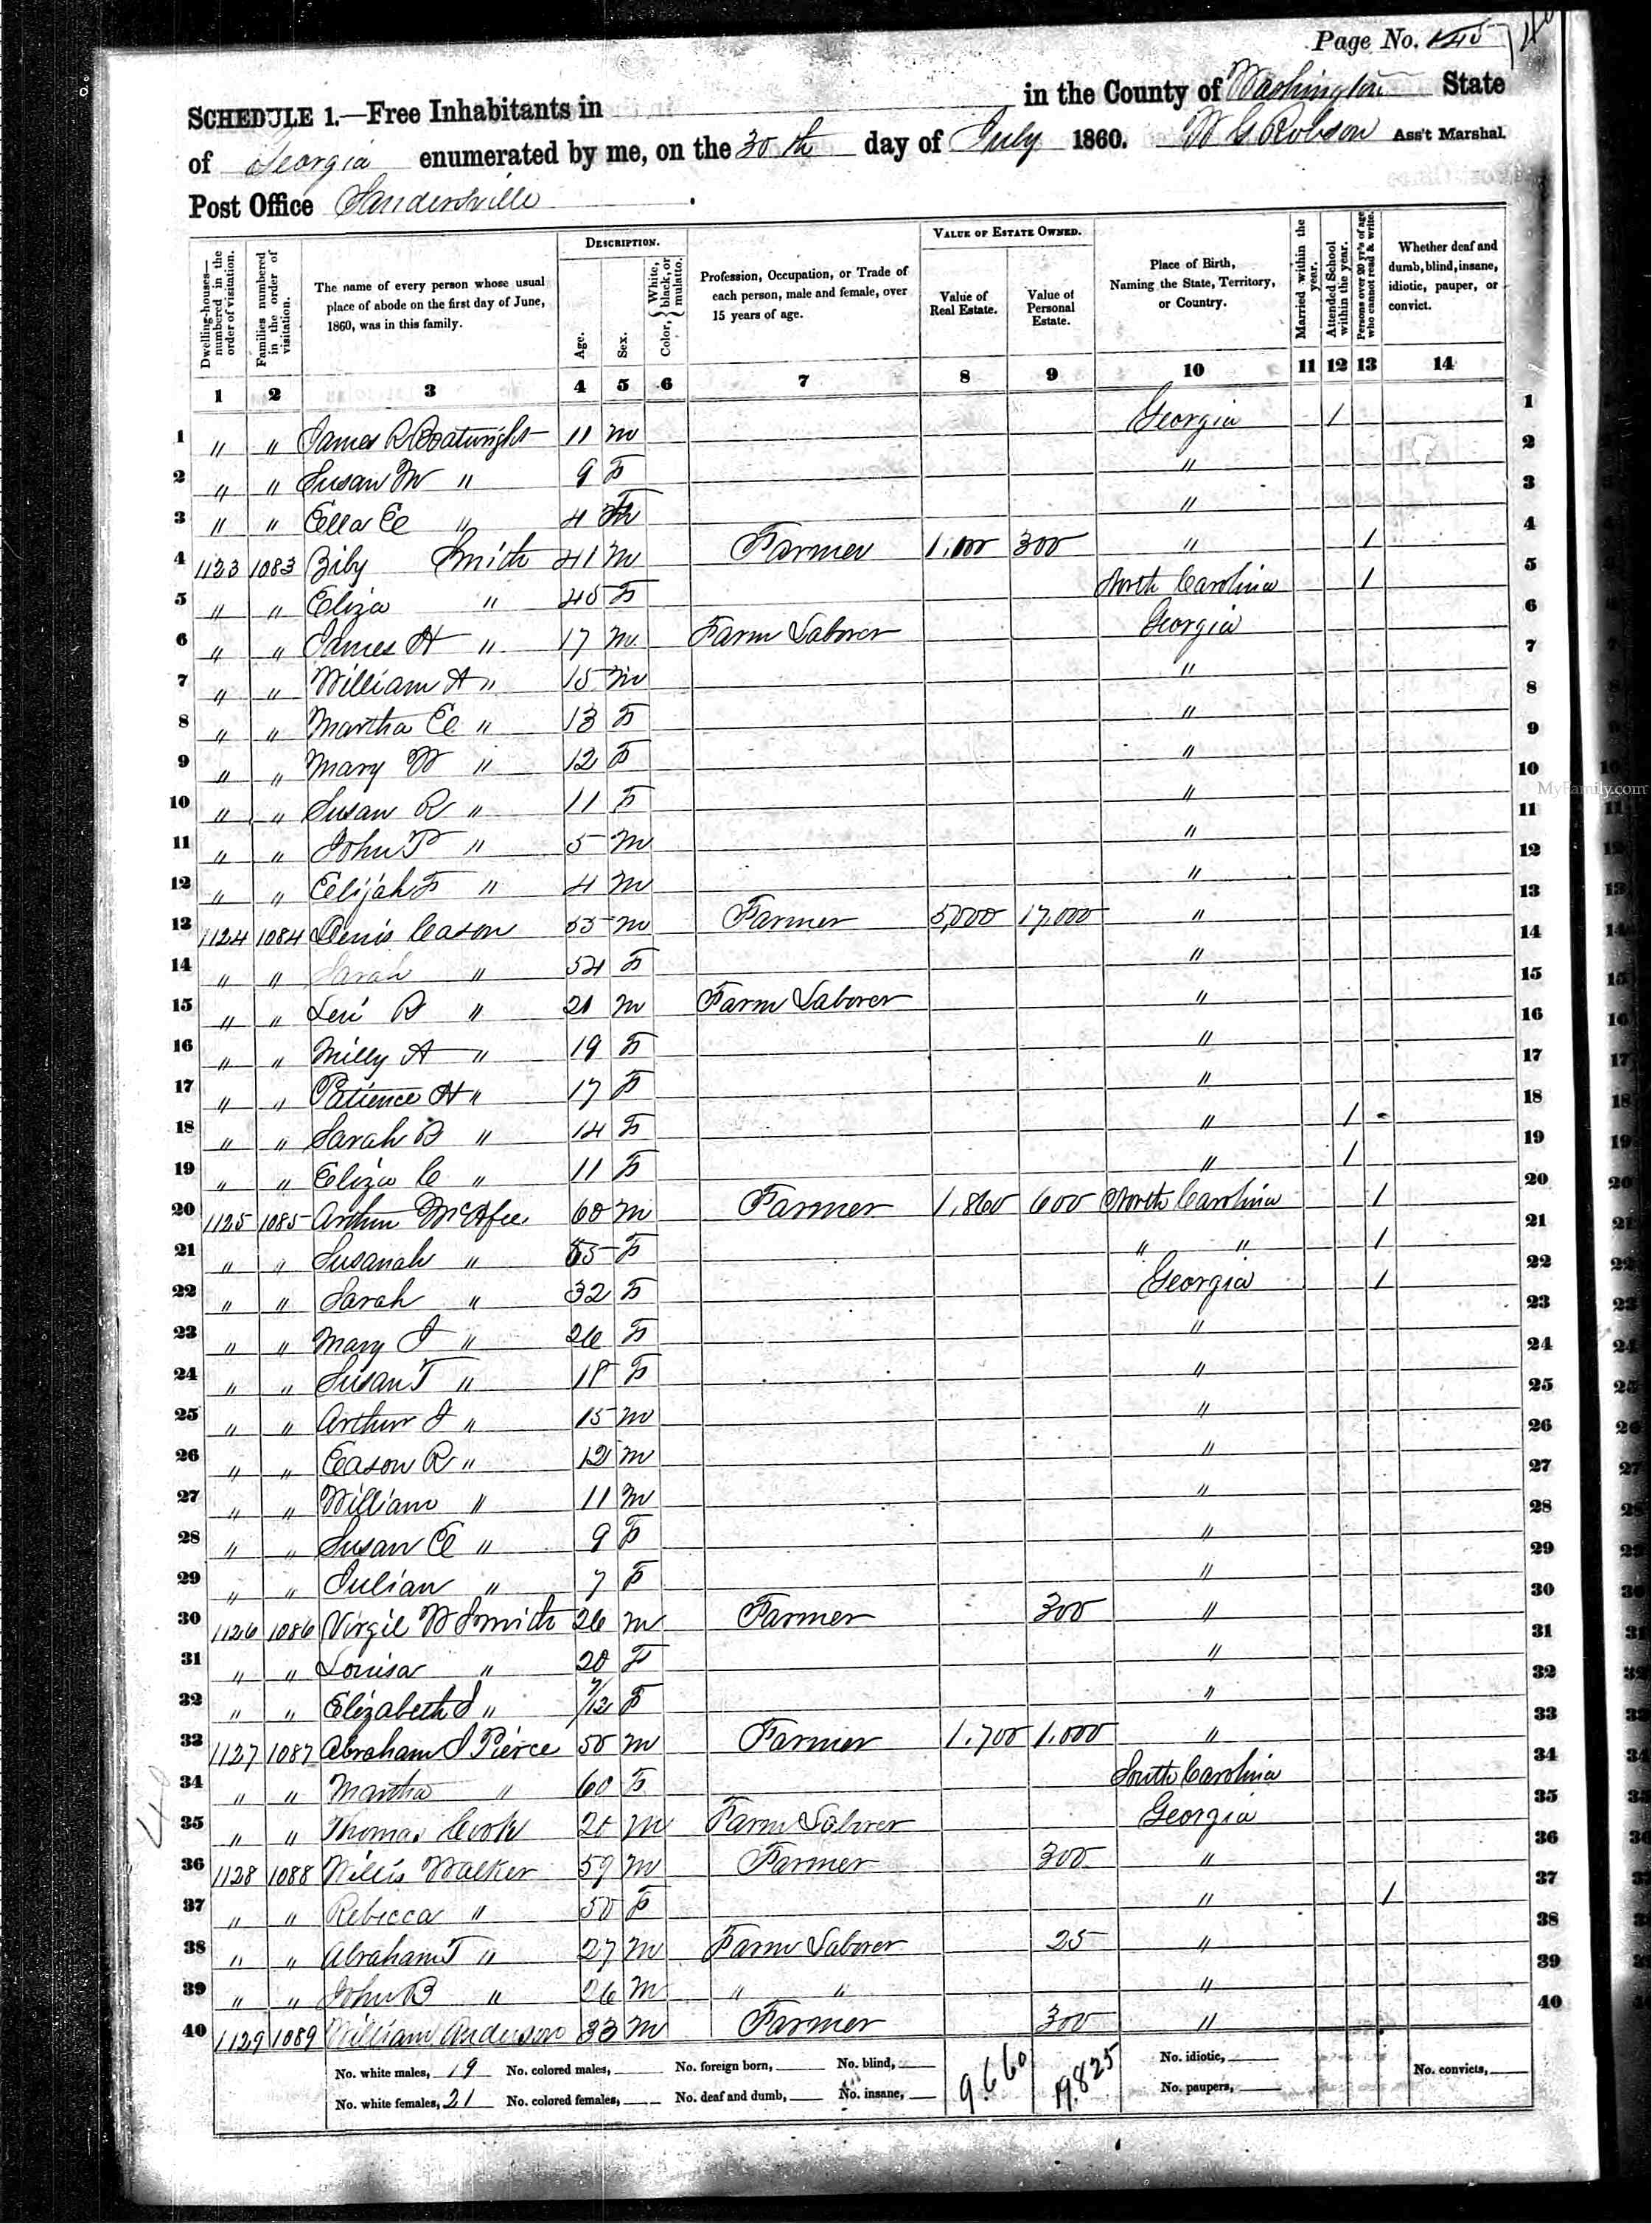 Page No. 145
SCHEDULE 1.—Free Inhabitants in in the County of Washington State
of Georgia enumerated by me, on the 30th day of July 1860. W G Robson Ass't Marshal.
Post Office Sandersville
Dwelling-houses—numbered in the order of visitation.
Families numbered in the order of visitation.
The name of every person whose usual place of abode on the first day of June, 1860, was in this family.
DESCRIPTION.
Age.
Sex.
Color, White, black, or mulatto.
Profession, Occupation, or Trade of each person, male and female, over 15 years of age.
VALUE OF ESTATE OWNED.
Value of Real Estate.
Value of Personal Estate.
Place of Birth, Naming the State, Territory, or Country.
Married within the year.
Attended School within the year.
Persons over 20 yr's of age who cannot read & write.
Whether deaf and dumb, blind, insane, idiotic, pauper, or convict.
1 2 3 4 5 6 7 8 9 10 11 12 13 14
1 " " James R Boatwright 11 m Georgia 1 1
2 " " Susan M " 9 F " 2
3 " " Ella E " 4 F " 3
4 1123 1083 Ziby Smith 41 m Farmer 1,000 300 " 1 4
5 " " Eliza " 45 F North Carolina 1 5
6 " " James H " 17 m Farm Laborer Georgia 6
7 " " William A " 15 m " 7
8 " " Martha E " 13 F " 8
9 " " Mary W " 12 F " 9
10 " " Susan R " 11 F " 10
MyFamily.com
11 " " John T " 5 m " 11
12 " " Elijah F " 4 m " 12
13 1124 1084 Denis Cason 55 m Farmer 5,000 17,000 " 13
14 " " Sarah " 54 F " 14
15 " " Levi B " 21 m Farm Laborer " 15
16 " " Milly A " 19 F " 16
17 " " Patience H " 17 F " 17
18 " " Sarah B " 14 F " 1 18
19 " " Eliza C " 11 F " 1 19
20 1125 1085 Arthur McAfee 60 m Farmer 1,860 600 North Carolina 1 20
21 " " Susanah " 55 F " " 1 21
22 " " Sarah " 32 F Georgia 1 22
23 " " Mary J " 26 F " 23
24 " " Susan T " 18 F " 24
25 " " Arthur J " 15 m " 25
26 " " Eason R " 12 m " 26
27 " " William " 11 m " 27
28 " " Susan E " 9 F " 28
29 " " Julian " 7 F " 29
30 1126 1086 Virgil W Smith 26 m Farmer 300 " 30
31 " " Louisa " 20 F " 31
32 " " Elizabeth J " 7/12 F " 32
33 1127 1087 Abraham J Pierce 50 m Farmer 1,700 1,000 " 33
34 " " Martha " 60 F South Carolina 34
35 " " Thomas Cook 20 m Farm Laborer Georgia 35
36 1128 1088 Willis Walker 59 m Farmer 300 " 36
37 " " Rebecca " 50 F " 1 37
38 " " Abraham T " 27 m Farm Laborer 25 " 38
39 " " John B " 26 m " " " 39
40 1129 1089 William Anderson 33 m Farmer 300 " 40
No. white males, 19 No. colored males, No. foreign born, No. blind, 9,660 19,825 No. idiotic, No. convicts,
No. white females, 21 No. colored females, No. deaf and dumb, No. insane, No. paupers,